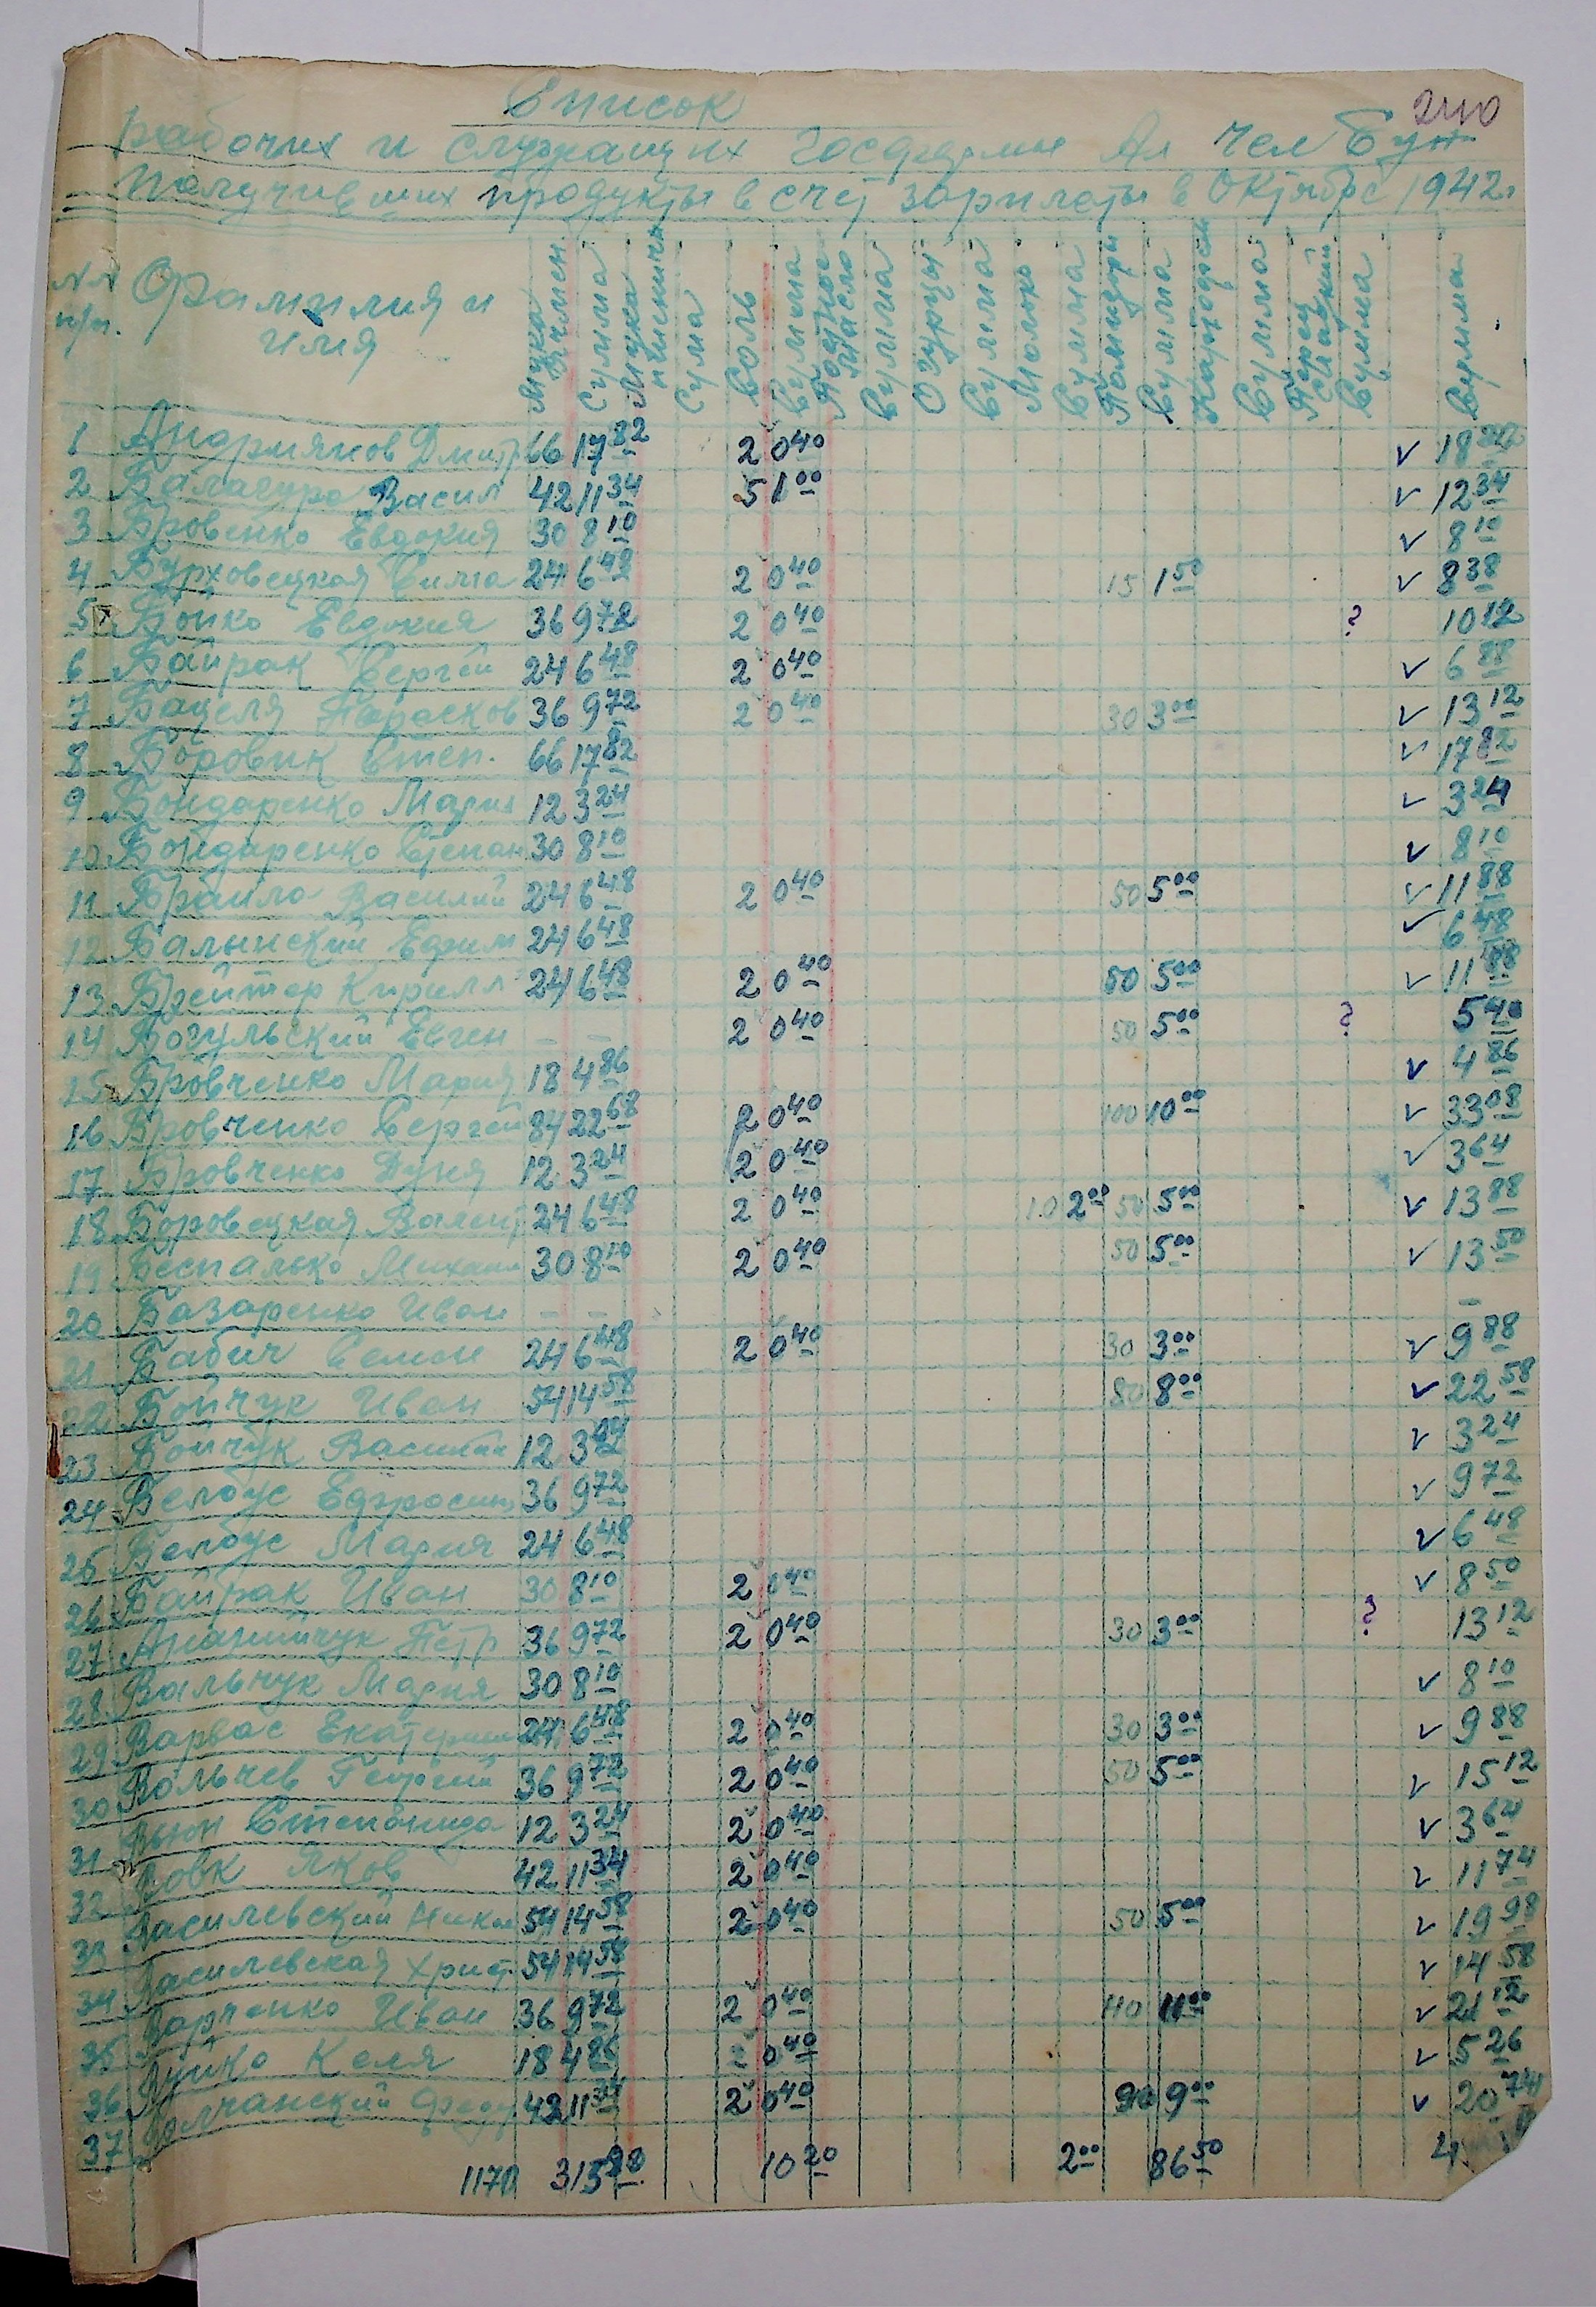 240
Список
рабочих и служащих
Получивших продукты в счет зарплаты в Октябре 1942г
№№ п/п.
Фамилия и имя
Мука ячмен
Сумма
Мука пшеничн
Сума
Соль
Сумма
Подсол Масло
Сумма
Огурцы
Сумма
Молоко
Сумма
Помидоры
Сумма
Картофель
Сумма
Перец сладкий
Сумма
Сумма
1 Андрияков Дмитр 66 17 82 2 0 40 ✓ 18 22
2 Балагура Васил 42 11 34 5 1 00 ✓ 12 34
3 Бровенко Евдокия 30 8 10 ✓ 8 10
4 Бурховецкая Сима 24 6 48 2 0 40 15 1 50 ✓ 8 38
5 Бойко Евдокия 36 9 72 2 0 40 ? 10 12
6 Байрак Сергей 24 6 48 2 0 40 ✓ 6 88
7 Бацеля Парасков 36 9 72 2 0 40 30 3 00 ✓ 13 12
8 Боровик Степ. 66 17 82 ✓ 17 82
9 Бондаренко Мария 12 3 24 ✓ 3 24
10 Бондаренко Степан 30 8 10 ✓ 8 10
11 Браило Василий 24 6 48 2 0 40 50 5 00 ✓ 11 88
12 Балынский Ефим 24 6 48 ✓ 6 48
13 Брейтер Кирилл 24 6 48 2 0 40 50 5 00 ✓ 11 88
14 Богульский Евген – – 2 0 40 50 5 00 ? 5 40
15 Бровченко Мария 18 4 86 ✓ 4 86
16 Бровченко Сергей 84 22 68 2 0 40 100 10 00 ✓ 33 08
17 Бровченко Дуня 12 3 24 2 0 40 ✓ 3 64
18 Боровецкая Валент 24 6 48 2 0 40 10 2 00 50 5 00 ✓ 13 88
19 Беспалько Михаил 30 8 10 2 0 40 50 5 00 ✓ 13 50
20 Базаренко Иван – – –
21 Бабич Семен 24 6 48 2 0 40 30 3 00 ✓ 9 88
22 Бойчук Иван 54 14 58 80 8 00 ✓ 22 58
23 Бойчук Василий 12 3 24 ✓ 3 24
24 Белоус Ефросин 36 9 72 ✓ 9 72
25 Белоус Мария 24 6 48 ✓ 6 48
26 Байрак Иван 30 8 10 2 0 40 ✓ 8 50
27 Ананийчук Петр 36 9 72 2 0 40 30 3 00 ? 13 12
28 Вальчук Мария 30 8 10 ✓ 8 10
29 Варвас Екатерин 24 6 48 2 0 40 30 3 00 ✓ 9 88
30 Вольчев Георгий 36 9 72 2 0 40 50 5 00 ✓ 15 12
31 Степанида 12 3 24 2 0 40 ✓ 3 64
32 Вовк Яков 42 11 34 2 0 40 ✓ 11 74
33 Василевский Никол 54 14 58 2 0 40 50 5 00 ✓ 19 98
34 Василевская Христ 54 14 58 ✓ 14 58
35 Варченко Иван 36 9 72 2 0 40 110 11 00 ✓ 21 12
36 Келя 18 4 86 2 0 40 ✓ 5 26
37 Волчанский Федор 42 11 34 2 0 40 90 9 00 ✓ 20 74
1170 315 90 10 20 2 00 86 50